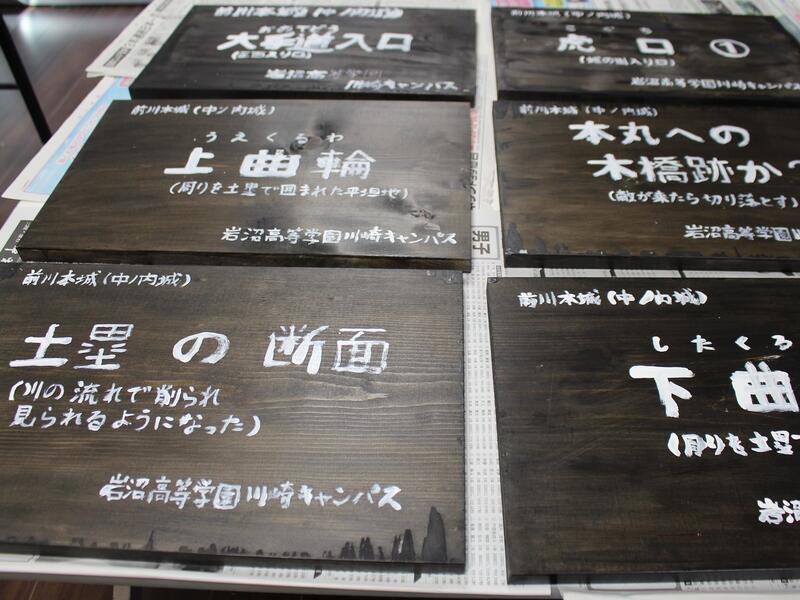 前川本城(中ノ内城)
大手道入口
岩沼高等学園
川崎キャンパス
前川本城(中ノ内城)
こぐち
虎口①
岩沼高等学園川崎キャンパス
前川本城(中ノ内城)
うえくるわ
上曲輪
(周りを土塁で囲まれた平坦地)
岩沼高等学園川崎キャンパス
前川本城(中ノ内城)
本丸への
木橋跡か?
(敵が来たら切り落とす)
岩沼高等学園川崎キャン
前川本城(中ノ内城)
土塁の断面
(川の流れで削られ
見られるようになった)
岩沼高等学園川崎キャンパス
前川本城(中ノ内城)
したくる
下曲
(周りを土塁で
岩沼
男子